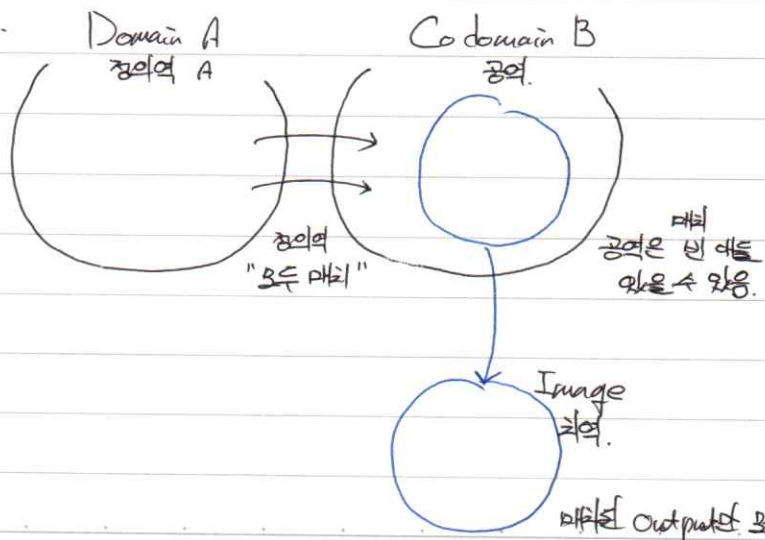 Domain A
정의역 A
Codomain B
공역.
정의역
"모두 매치"
매치
공역은 빈 애들
있을 수 있음.
Image
치역.
매치된 Output만